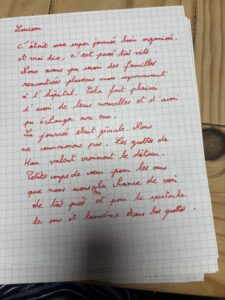 Louison
C'était une super journée bien organisée.
et vrai dire, c'est passé très vite.
Nous avons pu revoir des familles
rencontrées plusieurs mois auparavant
à l'hôpital. Cela fait plaisir
d'avoir de leurs nouvelles et d'avoir
pu échanger avec eux.
La journée était géniale. Nous
ne connaissions pas. Les grottes de
Han valent vraiment le détour.
Petits coups de cœur pour les ours
que nous avons eu la chance de voir
de très près et pour le spectacle
de son et lumières dans les grottes.